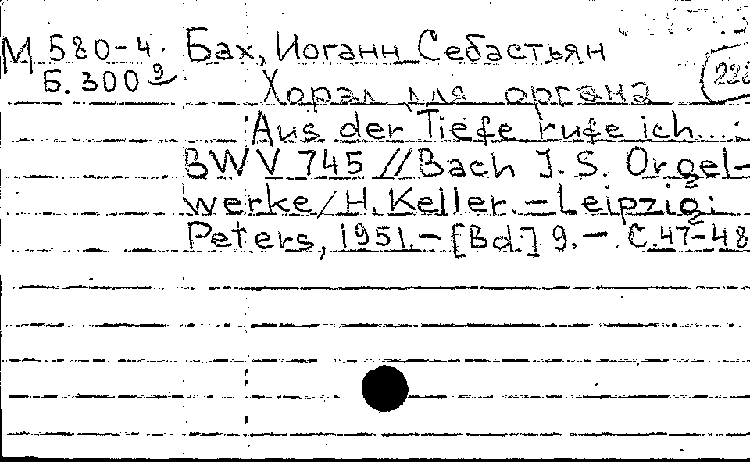 М 580-4. Бах, Иоганн Себастьян
Б. 300 9
Хорал для органа
Aus der Tiefe rufe ich... :
BWV 745 // Bach J. S. Orgel-
werke / H. Keller. – Leipzig:
Peters, 1951. – [Bd.] 9. – С. 47-48